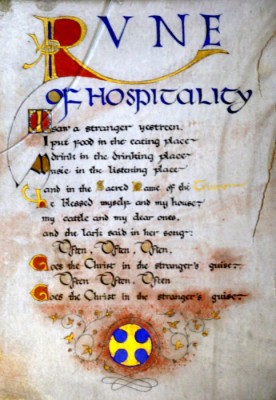 RUNE
OF HOSPITALITY
I saw a stranger yestreen,
I put food in the eating place
drink in the drinking place
Music in the listening place
and in the Sacred name of the
he blessed myself and my house
my cattle and my dear ones,
and the lark said in her song:
Often, Often, Often,
Goes the Christ in the stranger's guise.
Often Often, Often
Goes the Christ in the stranger's guise.